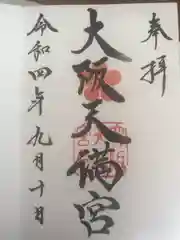 奉拝
大阪天満宮
令和四年九月十日